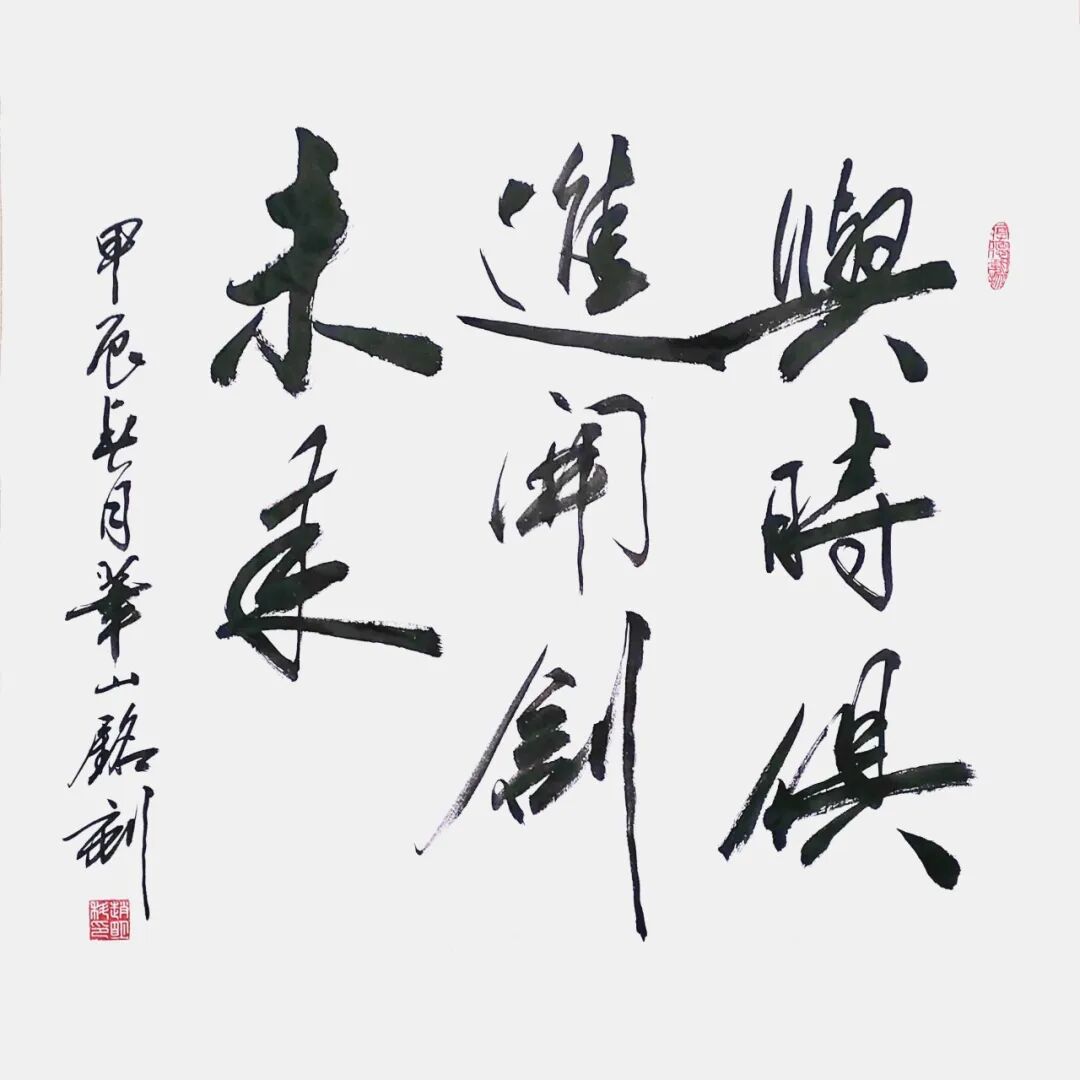 與時俱
進開創
未來
甲辰春月華山銘